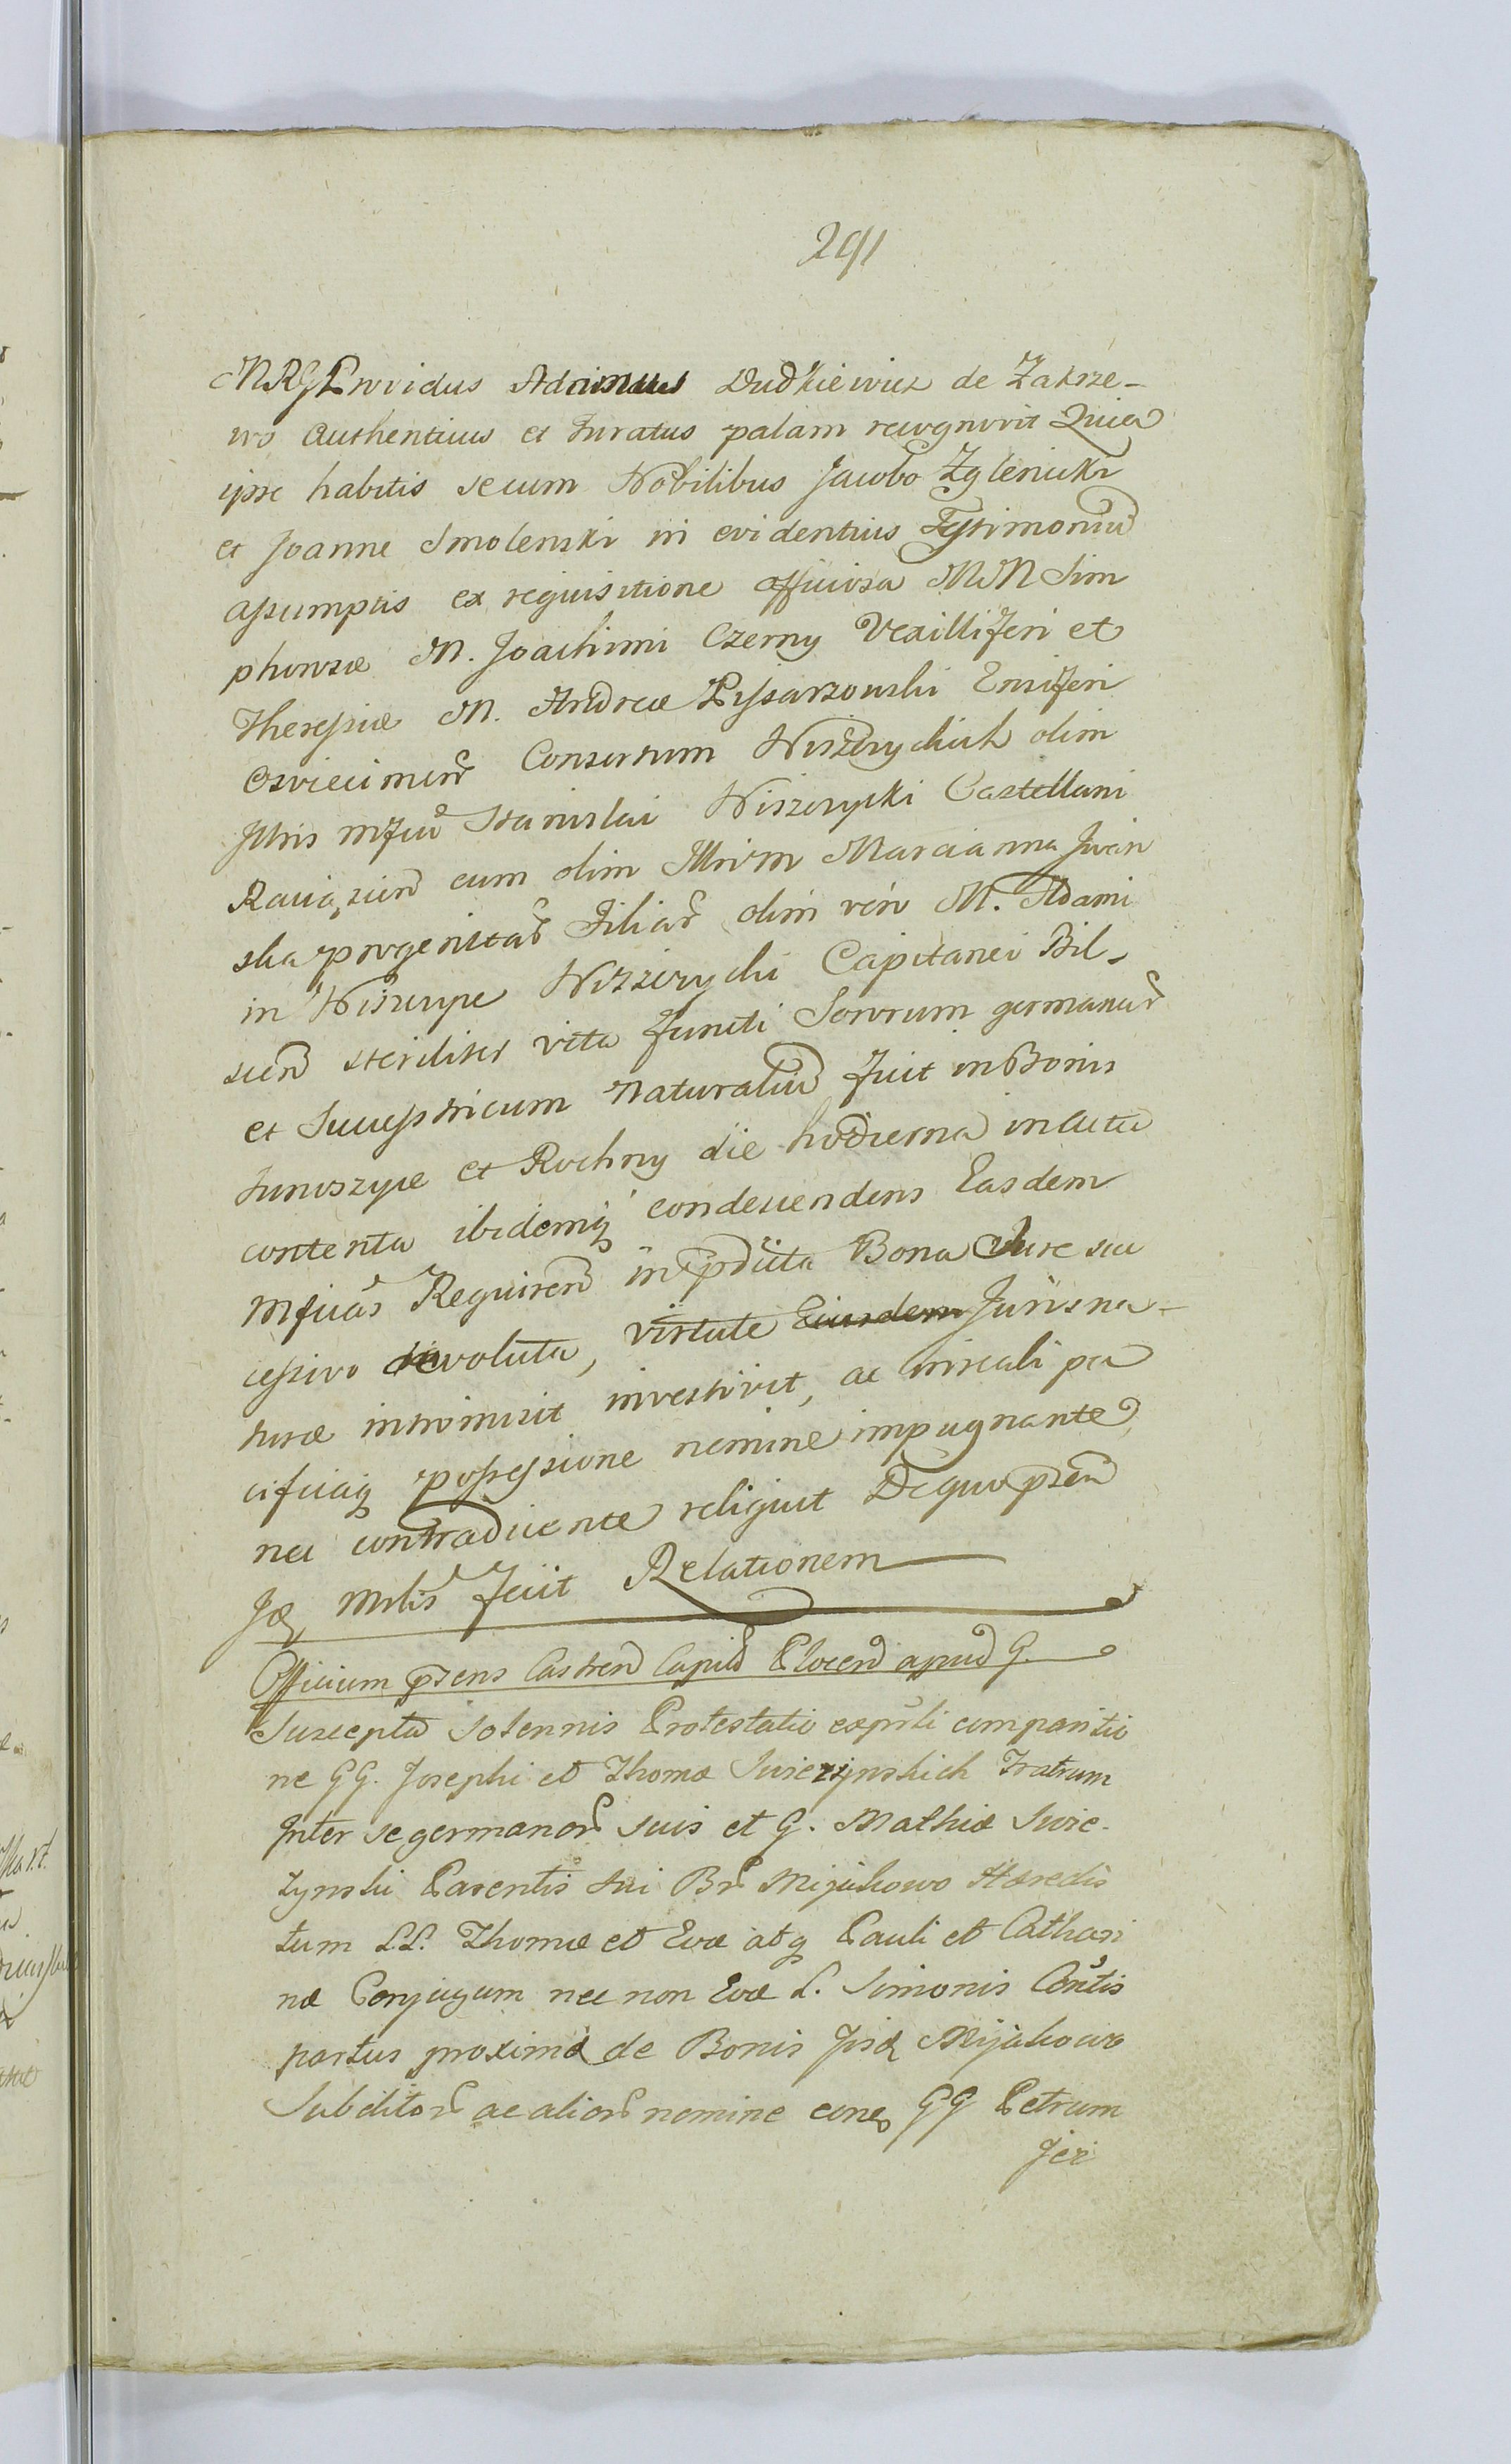 291
MRG Providus Adamus Dudkiewicz de Zakrze-
wo Authenticus et Juratus palam recognovit Quia
ipse habitis secum Nobilibus Jacobo Zglenicki
et Joanne Smolenski in evidentius Testimoniu
assumptis ex requisitione officiosa MM Sim
phorosæ M. Joachimi Czerny Vexilliferi et
Theressiæ M. Andreæ Pissarzowski Ensiferi
Osviecimen Consortum Wiszczyckich olim
Jllris Mfici Stanislai Wiszczycki Castellani
Ravasien cum olim Jllri M Marcianna
ska progenitar Filiar olim vero M. Adami
in Wiszczyce Wiszczycki Capitanei Bil-
scen steriliter vita functi Sororum germanar
et Successricum Naturaliu fuit in Bonis
et Rochny die hodierna in Actu
contenta ibidemq condescendens Easdem
Mficas Requiren in pdicta Bona Jure suc
cessivo devoluta, virtute Eiusdem Juris na-
turæ intromisit investivit, ac in reali pa
cificaq possessione nemine impugnante
nec contradicente reliquit De quo pzen
Jdq Mrlis fecit Relationem
Officium pzens Castren Capitl Plocen apud G.
Suscepta Solennis Protestatio expsli comparitio
ne GG. Josephi et Thomæ Swierzynskich Fratrum
Jnter se germanor suis et G. Mathiæ Swie-
zynski Parentis sui Br Mijakowo Hæredis
tum LL. Thomæ et Evæ atq Pauli et Cathari
næ Conjugum nec non Evæ L. Simonis Contis
partus proximæ de Bonis Jisd Mijakowo
Subditor ac alior nomine conq GG Petrum
Jer